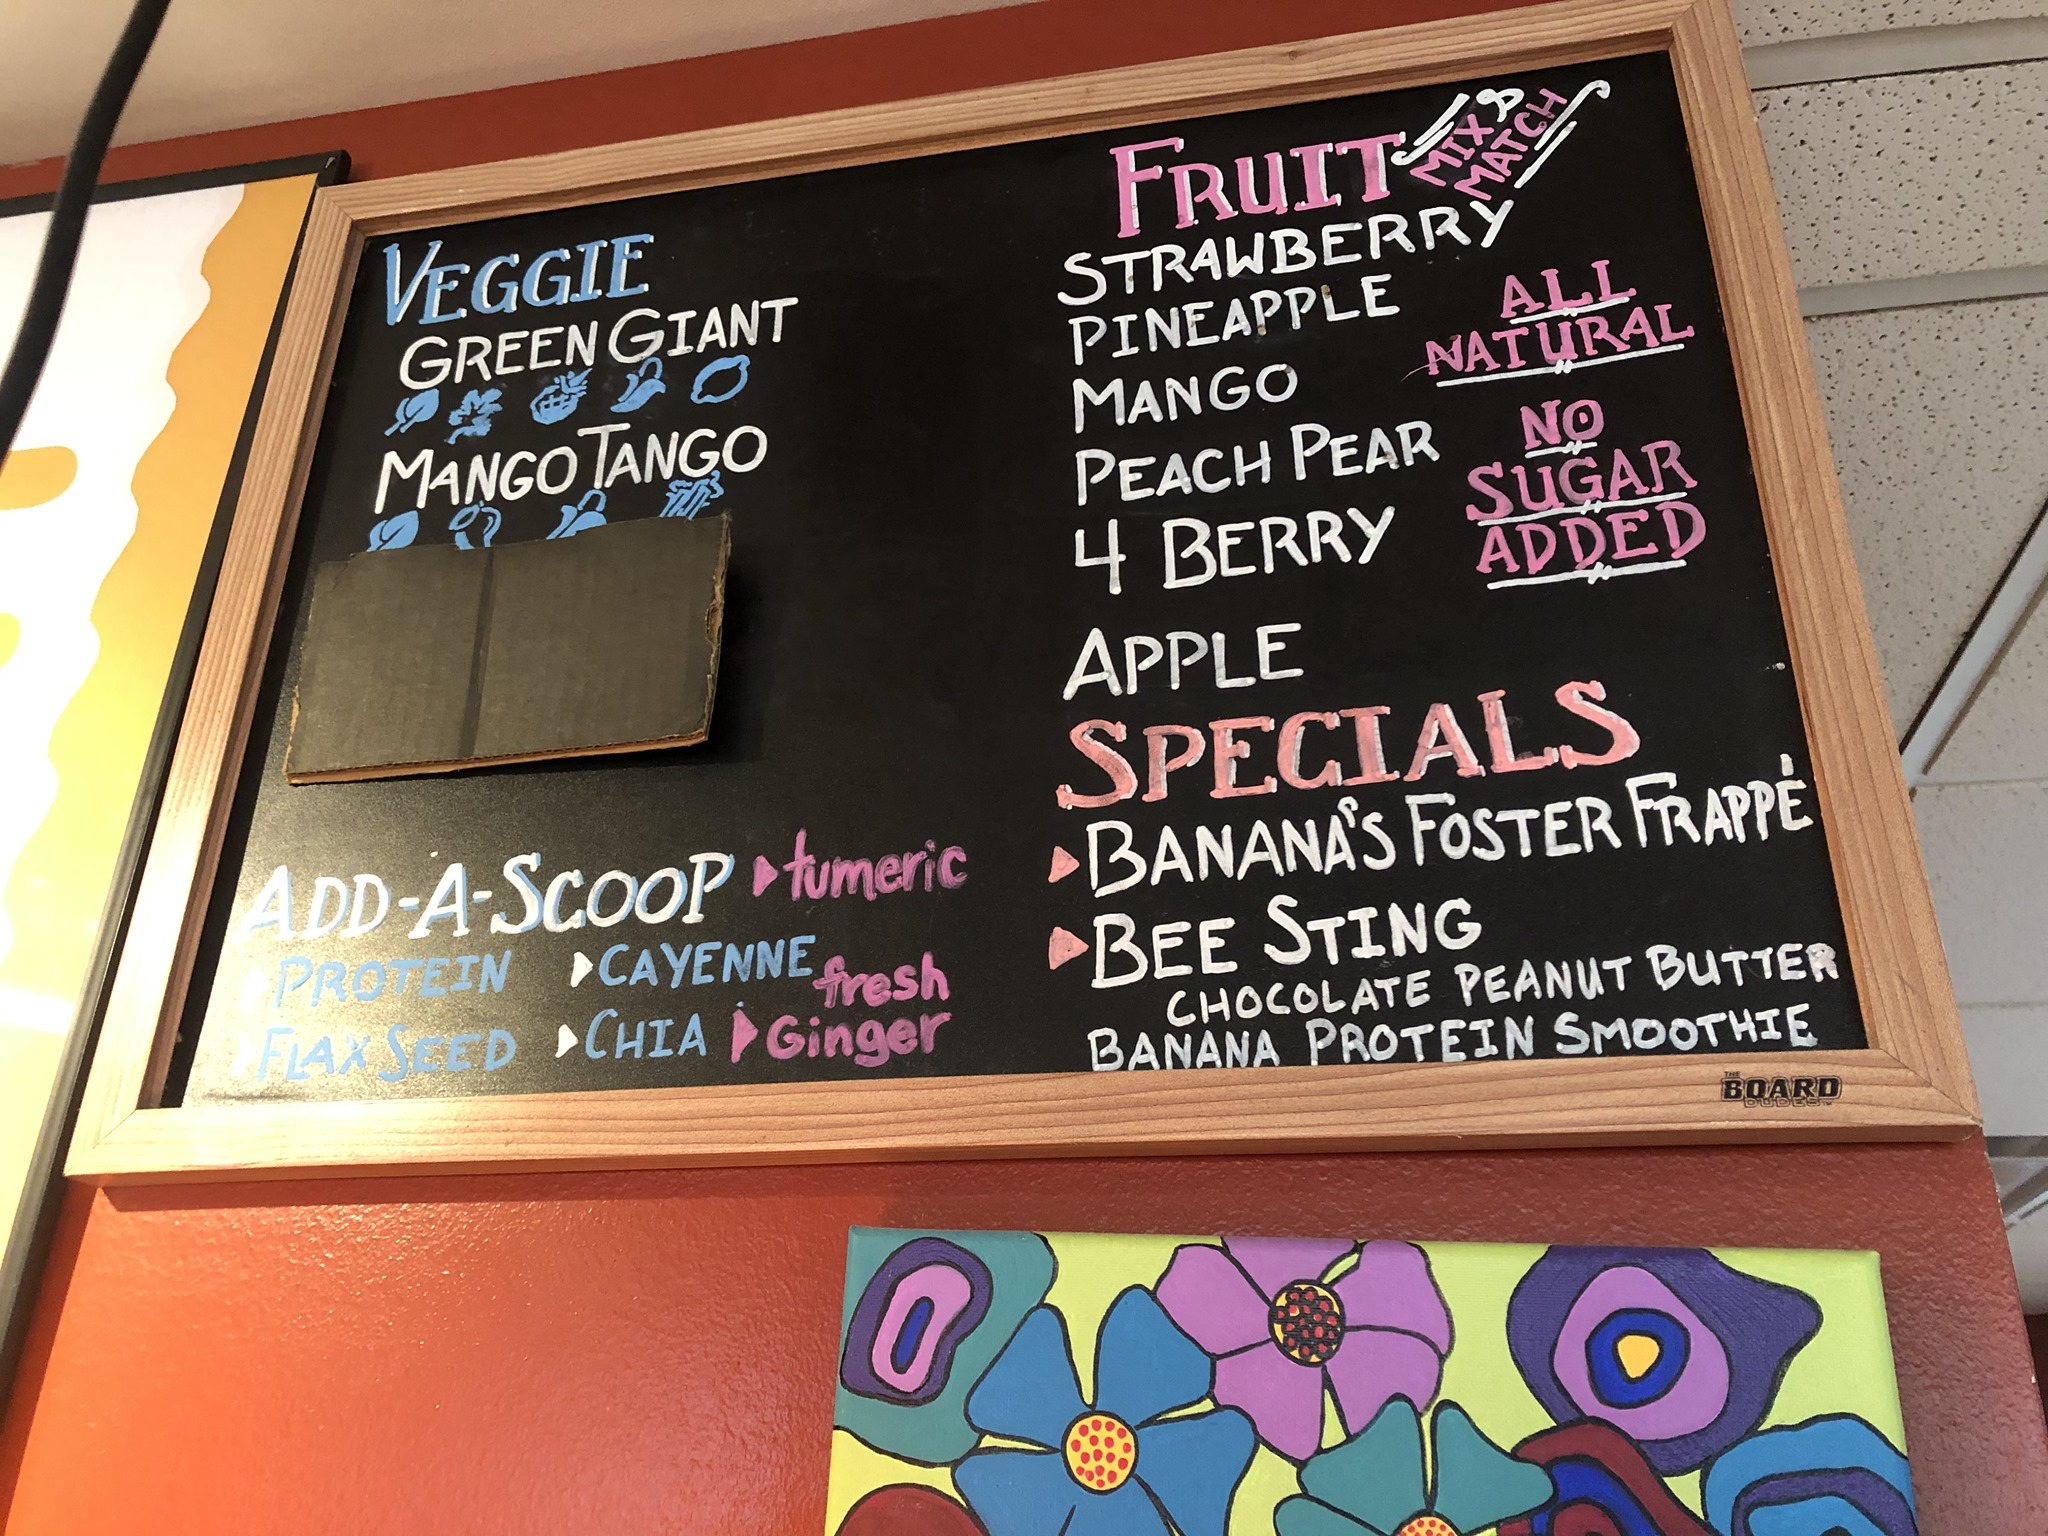 VEGGIE
GREEN GIANT
MANGO TANGO
ADD-A-SCOOP
tumeric
PROTEIN
CAYENNE
FLAX SEED
CHIA
fresh
Ginger
FRUIT
MIX &
MATCH
STRAWBERRY
PINEAPPLE
MANGO
PEACH PEAR
4 BERRY
APPLE
ALL
NATURAL
NO
SUGAR
ADDED
SPECIALS
BANANA'S FOSTER FRAPPÉ
BEE STING
CHOCOLATE PEANUT BUTTER
BANANA PROTEIN SMOOTHIE
THE
BOARD
DUDES